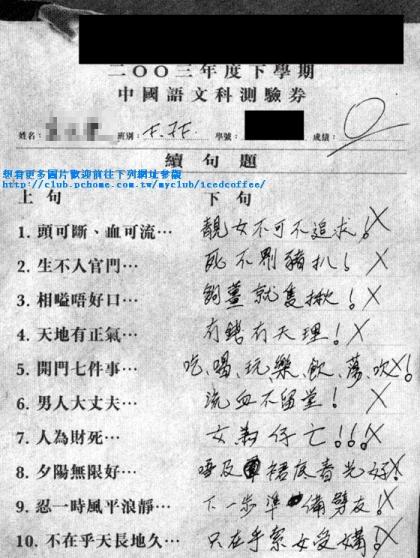 二〇〇三年度下學期
中國語文科測驗券
姓名: 班別: 學號: 成績: 0
續句題
想看更多圖片歡迎前往下列網址參觀
http://club.pchome.com.tw/myclub/icedcoffee/
上句 下句
1. 頭可斷、血可流⋯ 靚女不可不追求! X
2. 生不入官門⋯ 死不劏豬扒! X
3. 相嗌唔好口⋯ 就隻揪! X
4. 天地有正氣⋯ 有錢有天理! X
5. 開門七件事⋯ 吃、喝、玩、樂、飲、蕩、吹! X
6. 男人大丈夫⋯ 流血不留堂! X
7. 人為財死⋯ 女為仔亡!!! X
8. 夕陽無限好⋯ 唔及裙底春光好! X
9. 忍一時風平浪靜⋯ 下一步準備劈友! X
10. 不在乎天長地久⋯ 只在乎索女受媾! X